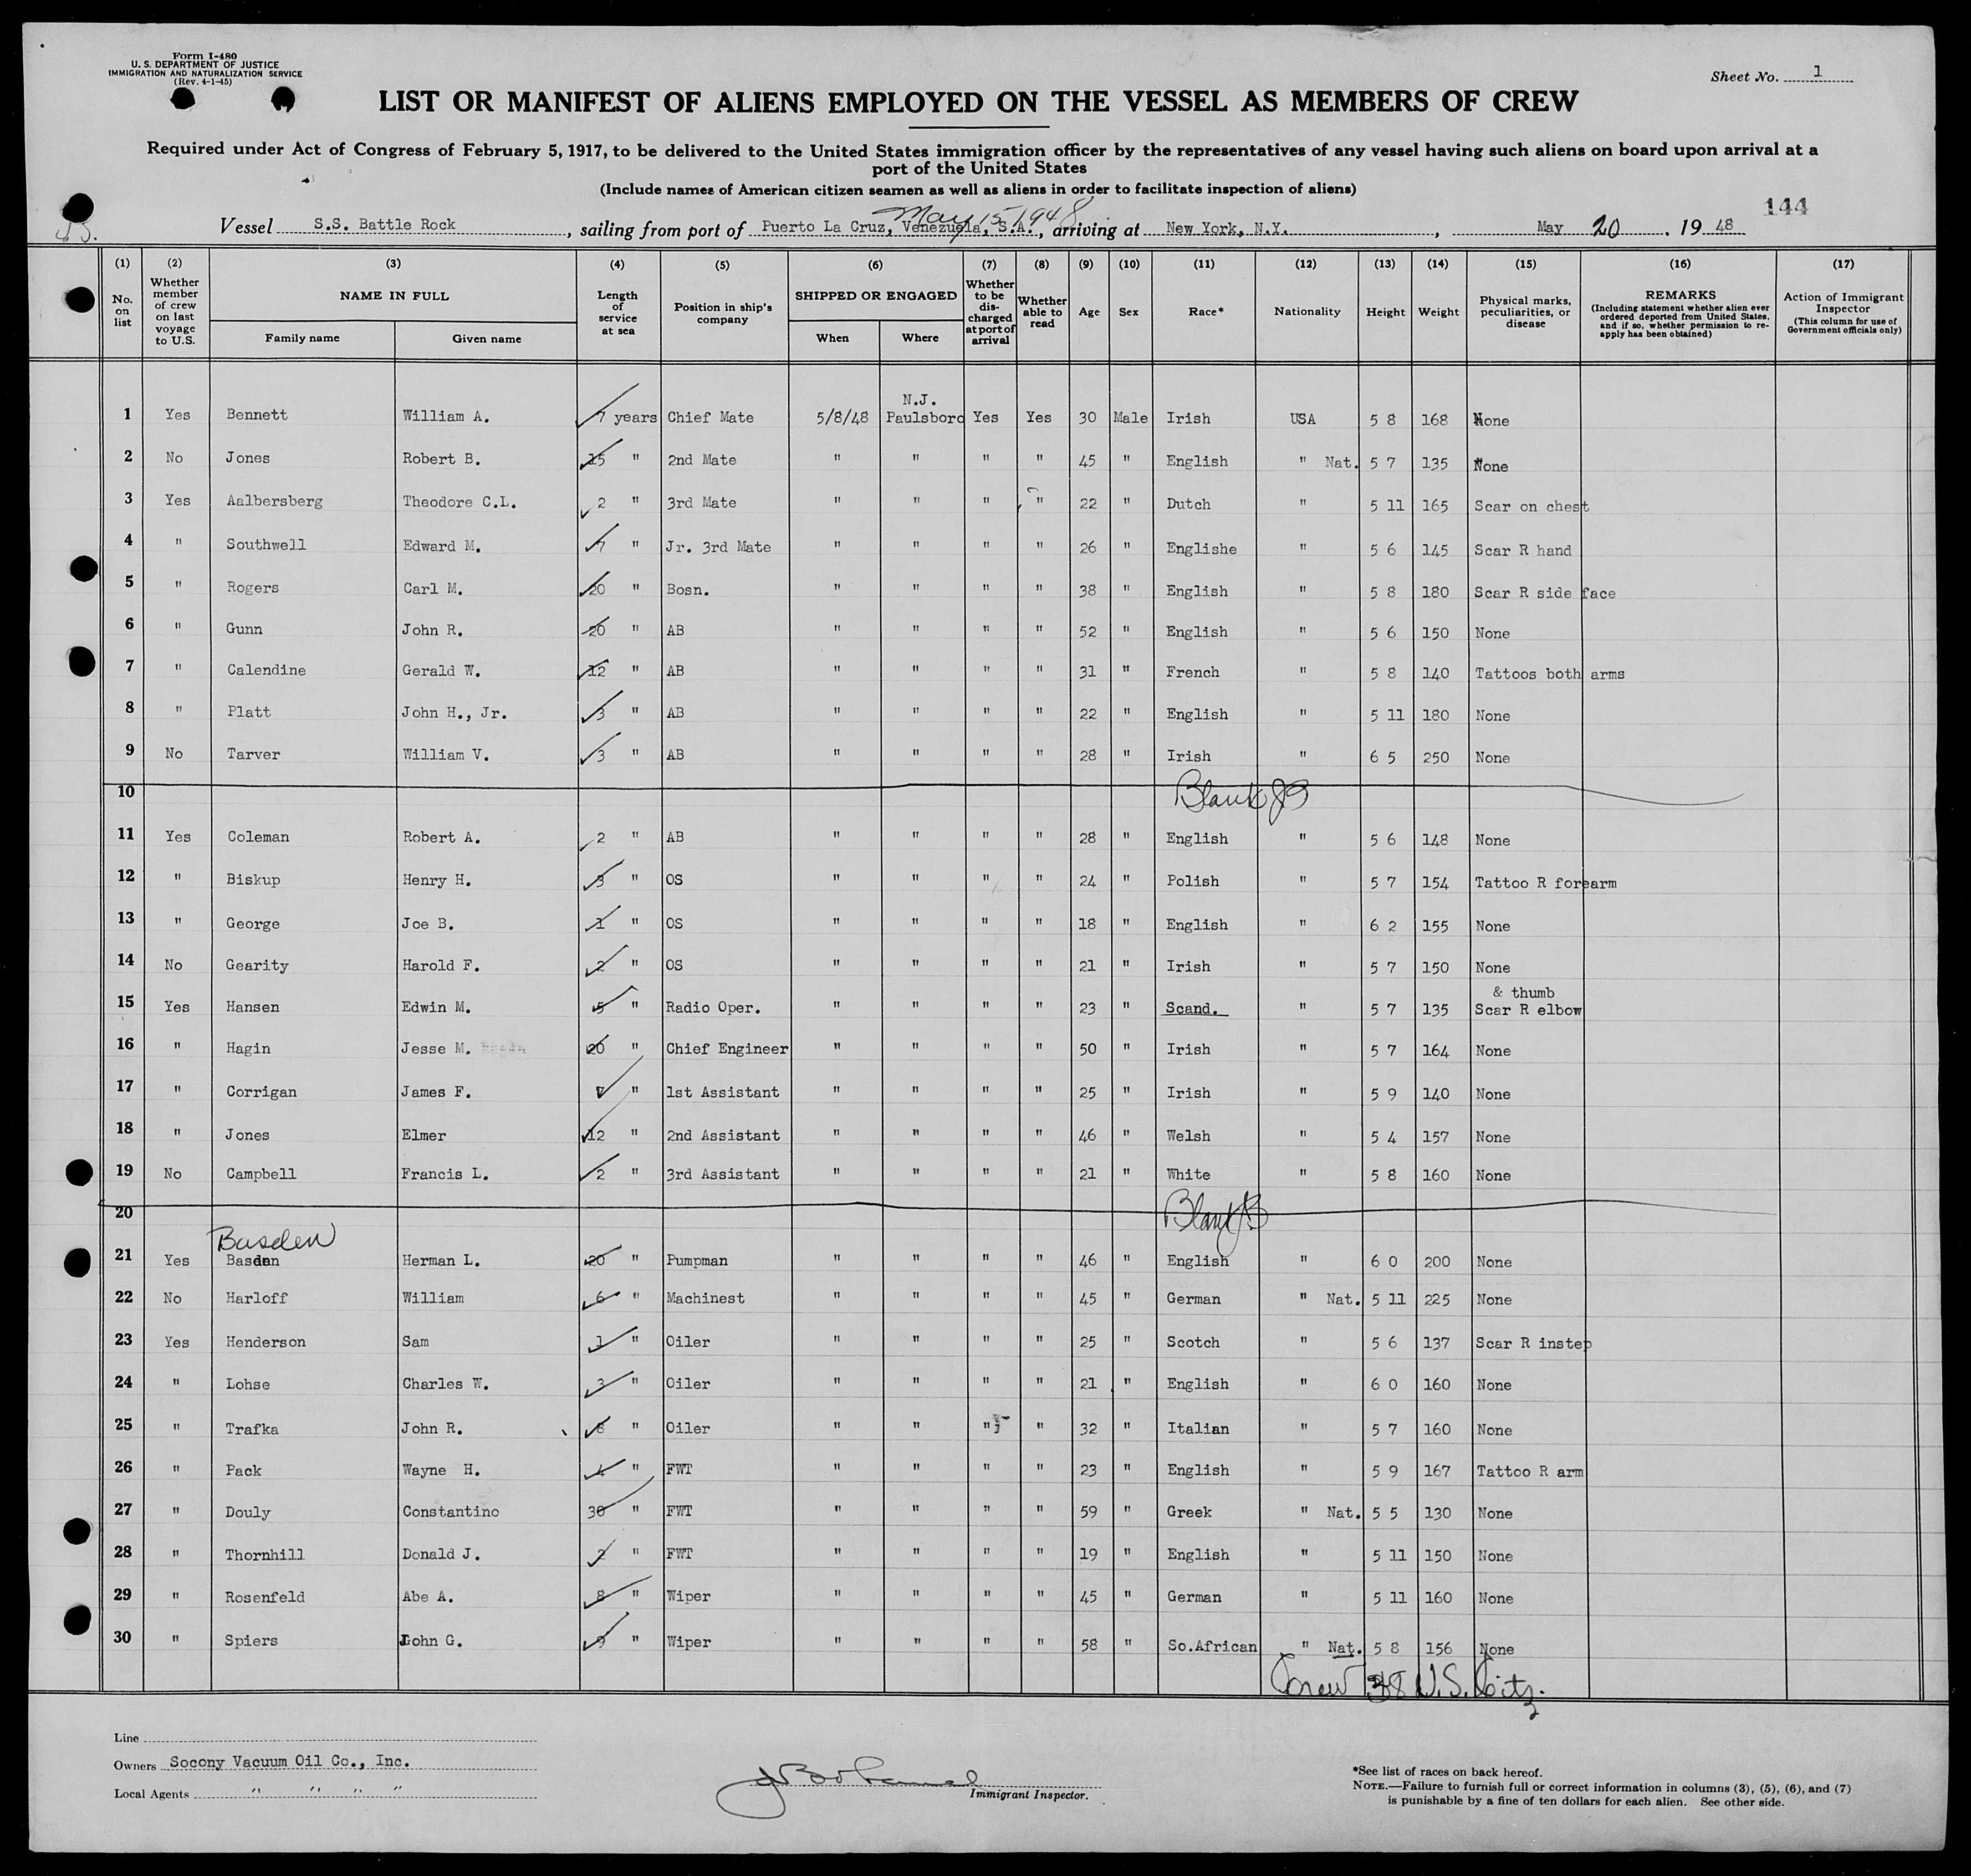 Form I-480
U. S. DEPARTMENT OF JUSTICE
IMMIGRATION AND NATURALIZATION SERVICE
(Rev. 4-1-45)
Sheet No. 1
LIST OR MANIFEST OF ALIENS EMPLOYED ON THE VESSEL AS MEMBERS OF CREW
Required under Act of Congress of February 5, 1917, to be delivered to the United States immigration officer by the representatives of any vessel having such aliens on board upon arrival at a
port of the United States
(Include names of American citizen seamen as well as aliens in order to facilitate inspection of aliens)
144
May 15, 1948
Vessel S.S. Battle Rock, sailing from port of Puerto La Cruz, Venezuela, S.A., arriving at New York, N.Y., May 20, 1948
(1) (2) (3) (4) (5) (6) (7) (8) (9) (10) (11) (12) (13) (14) (15) (16) (17)
No. on list Whether member of crew on last voyage to U.S. NAME IN FULL Family name Given name Length of service at sea Position in ship's company SHIPPED OR ENGAGED When Where Whether to be discharged at port of arrival Whether able to read Age Sex Race* Nationality Height Weight Physical marks, peculiarities, or disease REMARKS (Including statement whether alien ever ordered deported from United States, and if so, whether permission to re-apply has been obtained) Action of Immigrant Inspector (This column for use of Government officials only)
N.J.
1 Yes Bennett William A. 7 years Chief Mate 5/8/48 Paulsboro Yes Yes 30 Male Irish USA 5 8 168 None
2 No Jones Robert B. 15 " 2nd Mate " " " " 45 " English " Nat. 5 7 135 None
3 Yes Aalbersberg Theodore C.L. 2 " 3rd Mate " " " " 22 " Dutch " 5 11 165 Scar on chest
4 " Southwell Edward M. 7 " Jr. 3rd Mate " " " " 26 " Englishe " 5 6 145 Scar R hand
5 " Rogers Carl M. 20 " Bosn. " " " " 38 " English " 5 8 180 Scar R side face
6 " Gunn John R. 20 " AB " " " " 52 " English " 5 6 150 None
7 " Calendine Gerald W. 12 " AB " " " " 31 " French " 5 8 140 Tattoos both arms
8 " Platt John H., Jr. 3 " AB " " " " 22 " English " 5 11 180 None
9 No Tarver William V. 3 " AB " " " " 28 " Irish " 6 5 250 None
10 Blank
11 Yes Coleman Robert A. 2 " AB " " " " 28 " English " 5 6 148 None
12 " Biskup Henry H. 3 " OS " " " " 24 " Polish " 5 7 154 Tattoo R forearm
13 " George Joe B. 1 " OS " " " " 18 " English " 6 2 155 None
14 No Gearity Harold F. 2 " OS " " " " 21 " Irish " 5 7 150 None
& thumb
15 Yes Hansen Edwin M. 5 " Radio Oper. " " " " 23 " Scand. " 5 7 135 Scar R elbow
16 " Hagin Jesse M. 20 " Chief Engineer " " " " 50 " Irish " 5 7 164 None
17 " Corrigan James F. 7 " 1st Assistant " " " " 25 " Irish " 5 9 140 None
18 " Jones Elmer 12 " 2nd Assistant " " " " 46 " Welsh " 5 4 157 None
19 No Campbell Francis L. 2 " 3rd Assistant " " " " 21 " White " 5 8 160 None
20 Blank
Basden
21 Yes Basden Herman L. 20 " Pumpman " " " " 46 " English " 6 0 200 None
22 No Harloff William 6 " Machinest " " " " 45 " German " Nat. 5 11 225 None
23 Yes Henderson Sam 1 " Oiler " " " " 25 " Scotch " 5 6 137 Scar R instep
24 " Lohse Charles W. 3 " Oiler " " " " 21 " English " 6 0 160 None
25 " Trafka John R. 8 " Oiler " " " " 32 " Italian " 5 7 160 None
26 " Pack Wayne H. 4 " FWT " " " " 23 " English " 5 9 167 Tattoo R arm
27 " Douly Constantino 30 " FWT " " " " 59 " Greek " Nat. 5 5 130 None
28 " Thornhill Donald J. 2 " FWT " " " " 19 " English " 5 11 150 None
29 " Rosenfeld Abe A. 8 " Wiper " " " " 45 " German " 5 11 160 None
30 " Spiers John G. 9 " Wiper " " " " 58 " So.African " Nat. 5 8 156 None
Crew 38 U.S. Citz.
Line
Owners Socony Vacuum Oil Co., Inc.
Local Agents " " " "
Immigrant Inspector.
*See list of races on back hereof.
NOTE.—Failure to furnish full or correct information in columns (3), (5), (6), and (7)
is punishable by a fine of ten dollars for each alien. See other side.